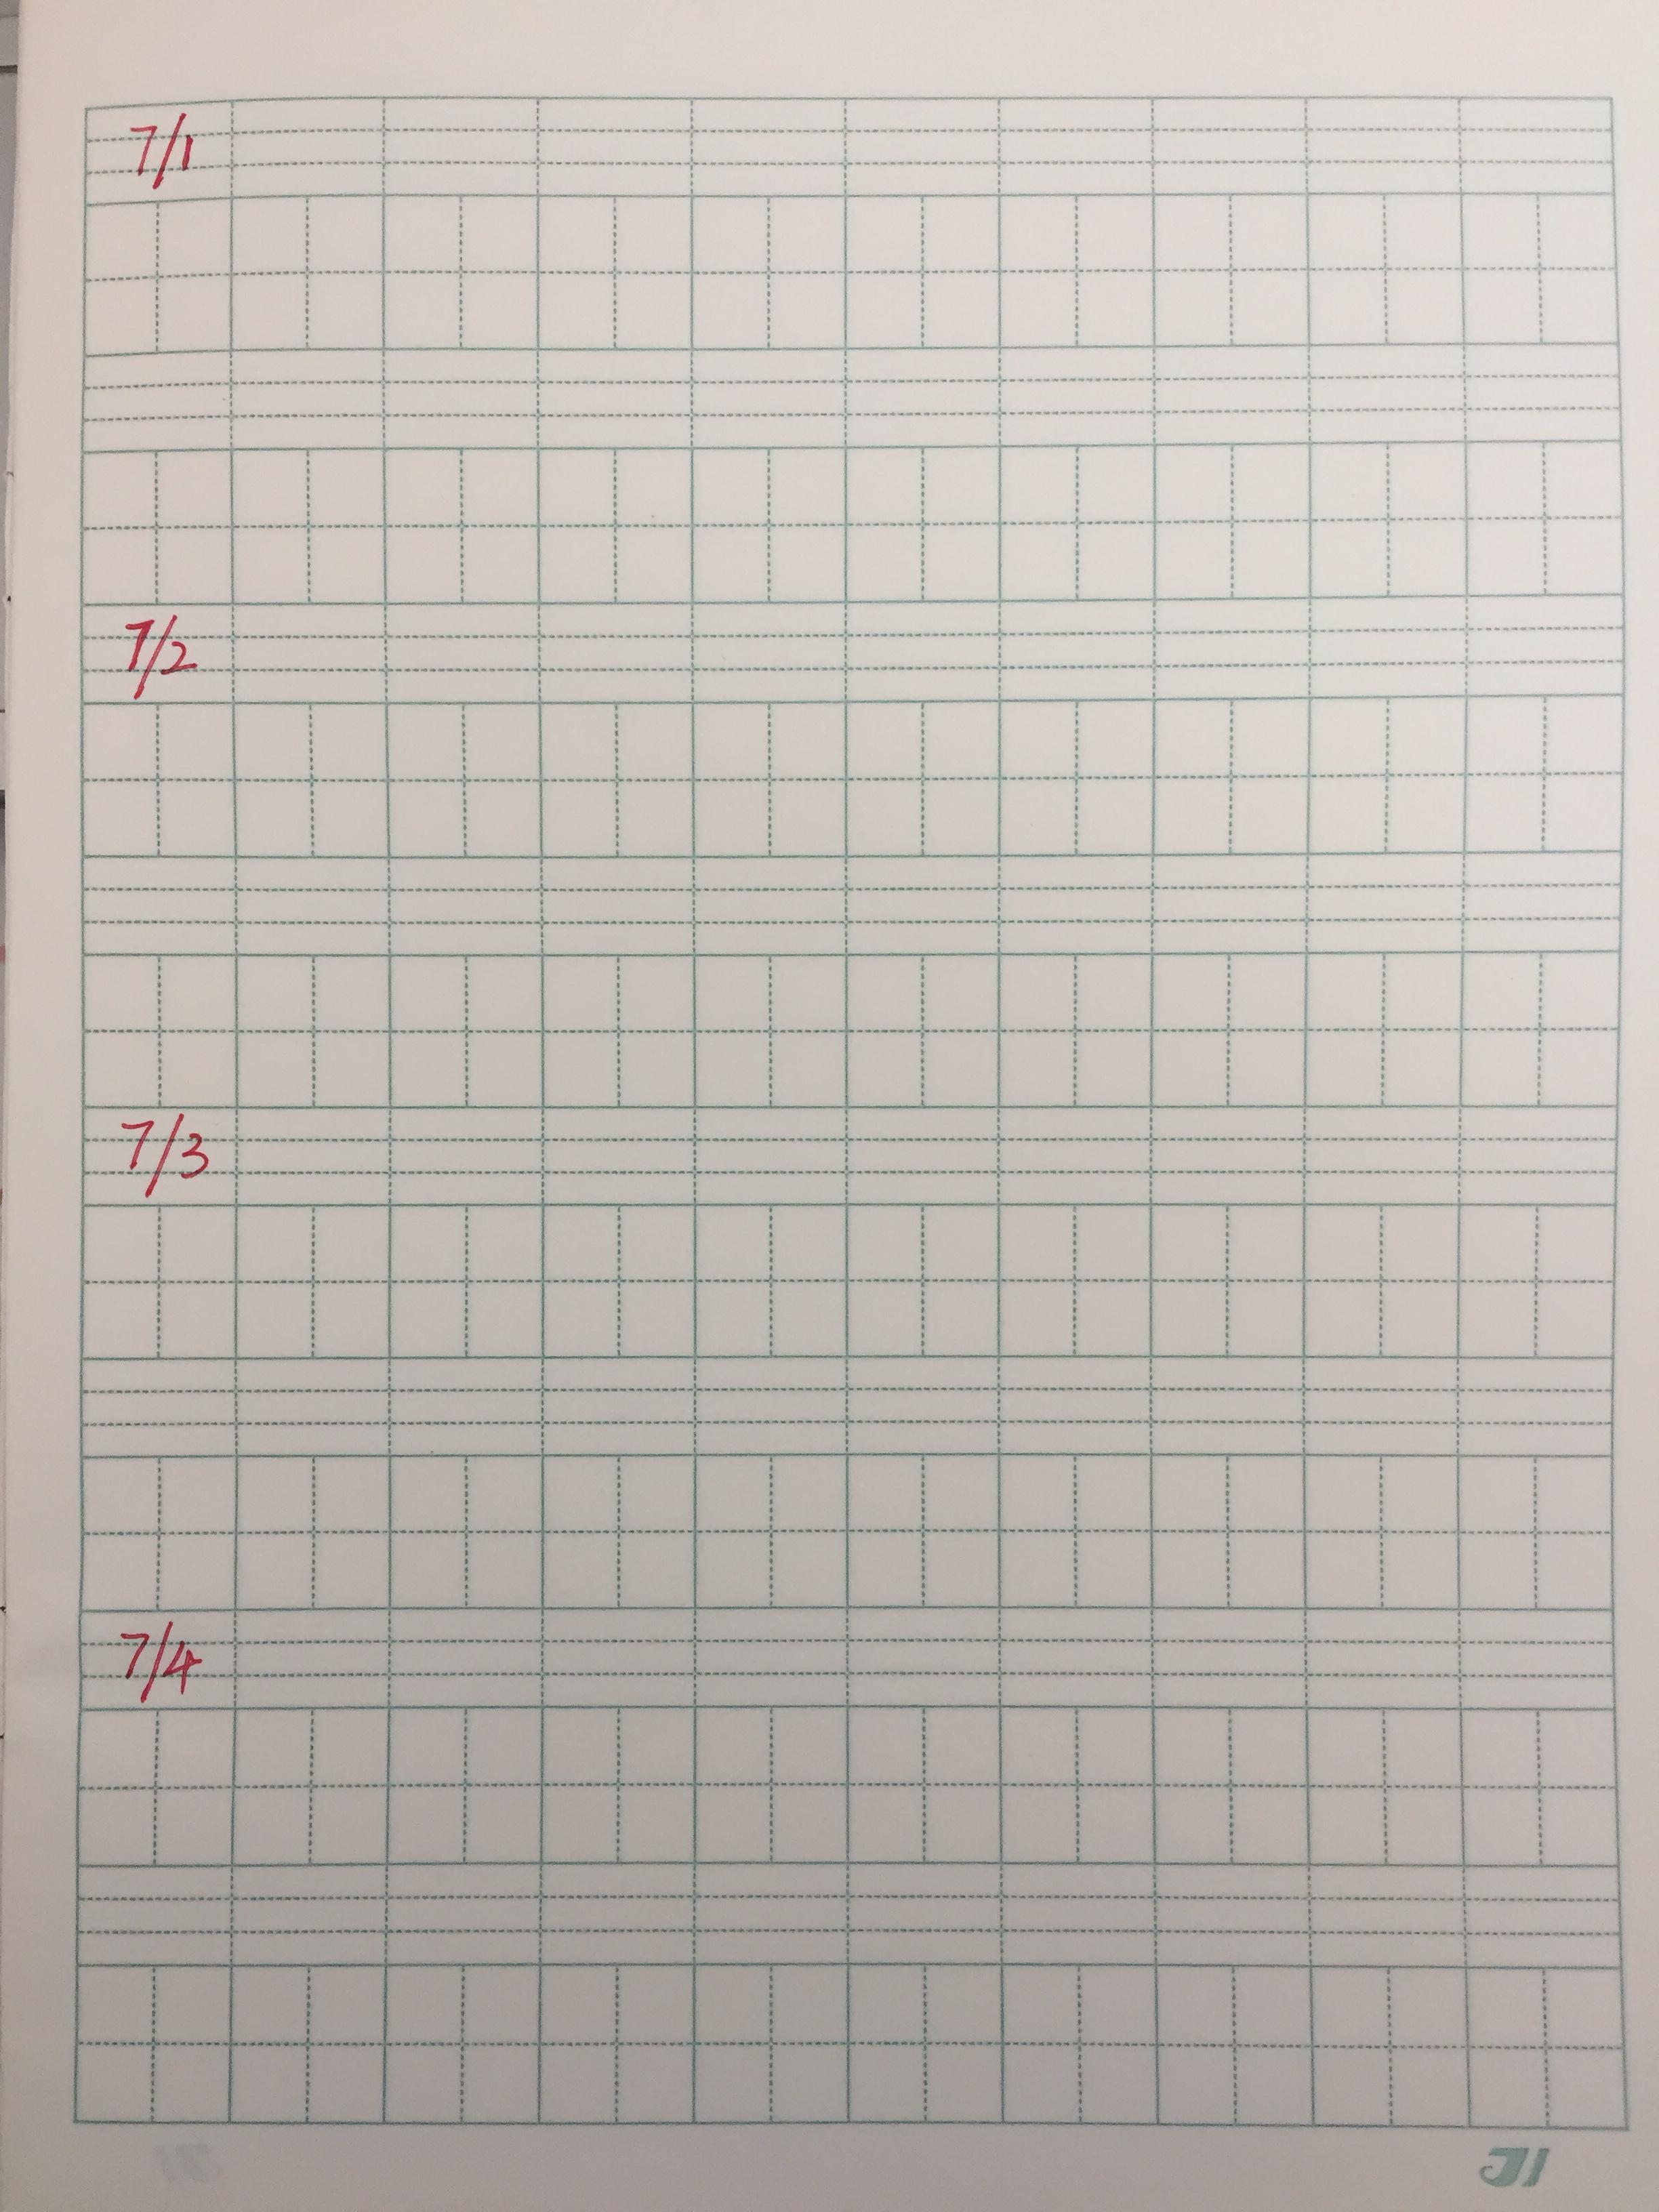 7/1
7/2
7/3
7/4